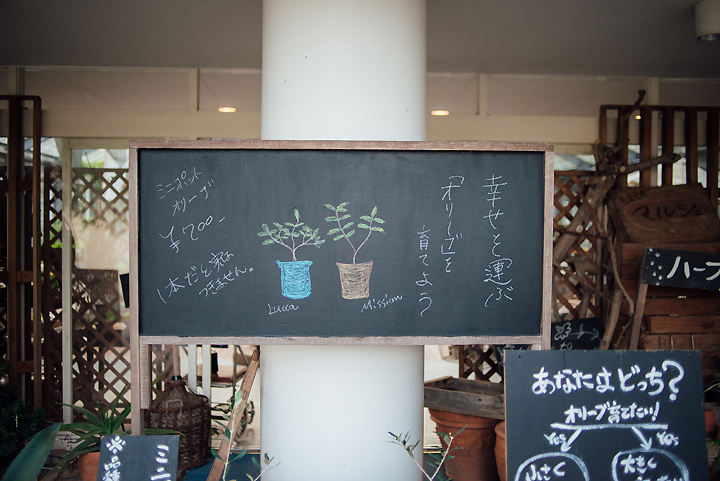 幸せを運ぶ
「オリーブ」を
育てよう
ミニポット
オリーブ
¥700-
1本だと実は
つきません。
Lucca
Mission
マルシェ
ハーブ
あなたはどっち?
オリーブ育てたい!
Yes
Yes
小さく
大きく
※品種
ミニ